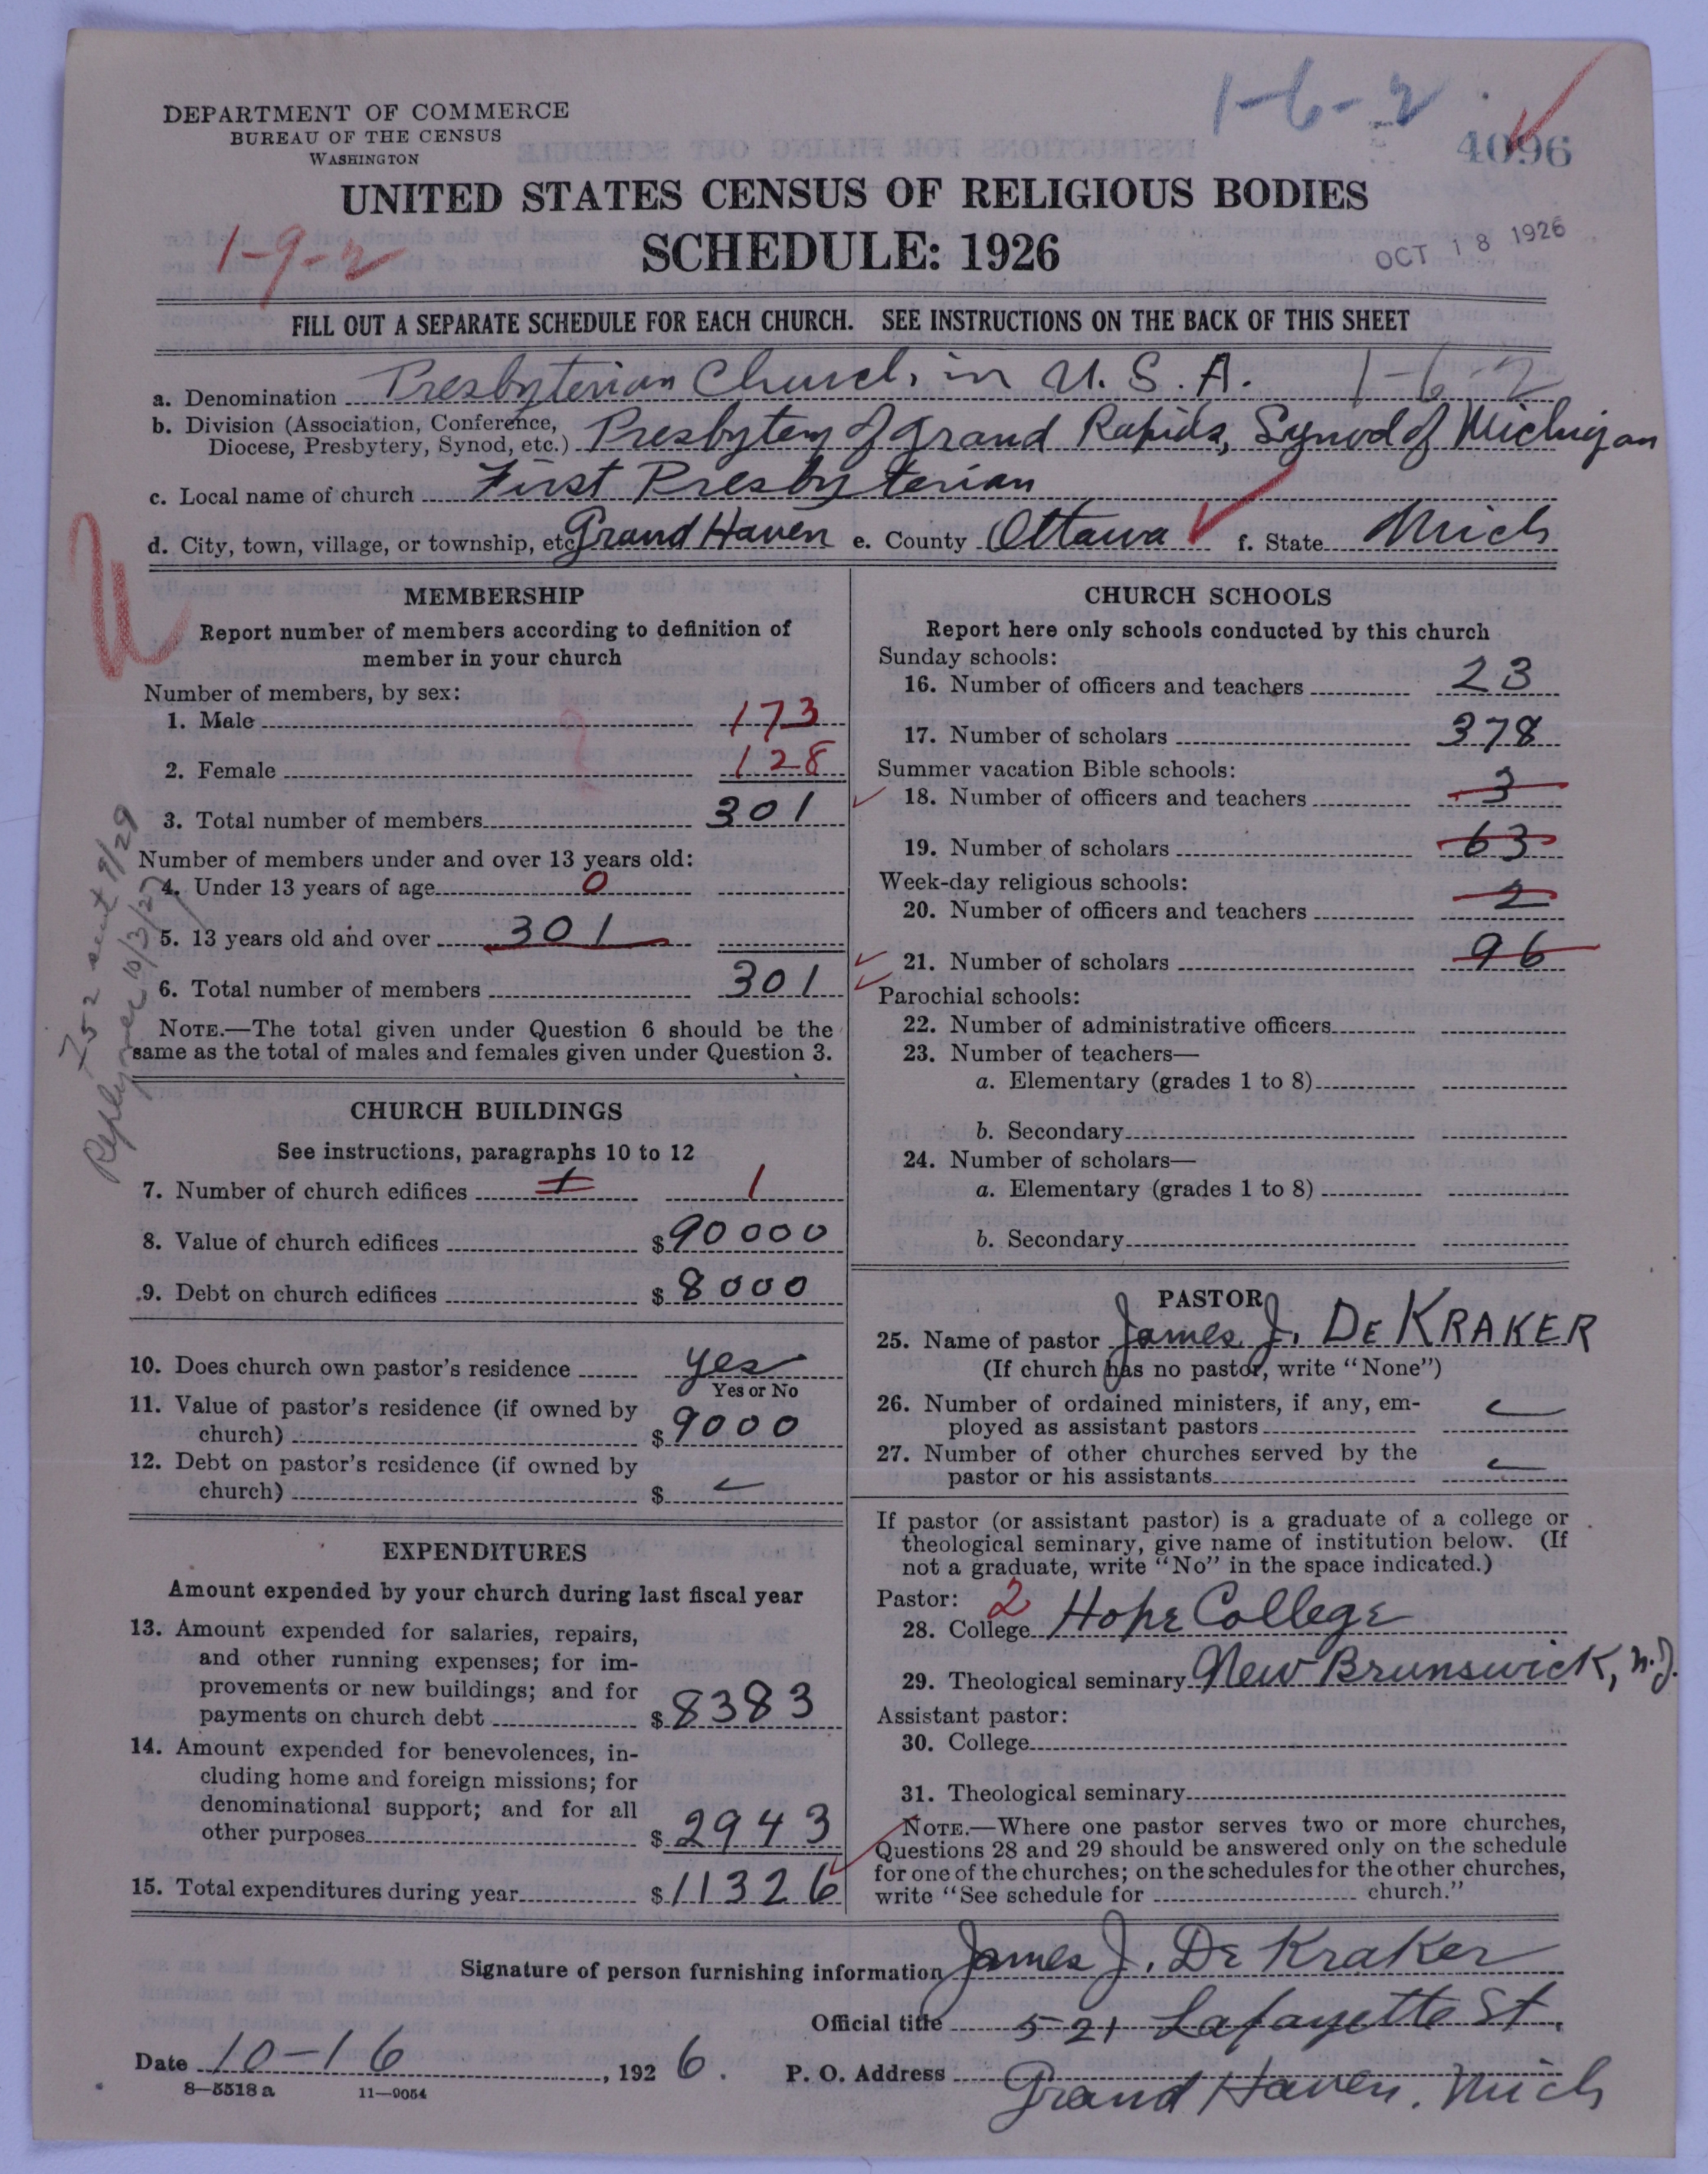 1-6-2
DEPARTMENT OF COMMERCE
BUREAU OF THE CENSUS
WASHINGTON
4096
UNITED STATES CENSUS OF RELIGIOUS BODIES
1-9-2
SCHEDULE: 1926
OCT 18 1926
FILL OUT A SEPARATE SCHEDULE FOR EACH CHURCH. SEE INSTRUCTIONS ON THE BACK OF THIS SHEET
a. Denomination Presbyterian Church in U. S. A. 1-6-2
b. Division (Association, Conference,
Diocese, Presbytery, Synod, etc.) Presbytery of Grand Rapids, Synod of Michigan
c. Local name of church First Presbyterian
d. City, town, village, or township, etc Grand Haven e. County Ottawa f. State Mich
MEMBERSHIP
Report number of members according to definition of
member in your church
Number of members, by sex:
1. Male 173
2. Female 128
3. Total number of members 301
Number of members under and over 13 years old:
4. Under 13 years of age 0
5. 13 years old and over 301
6. Total number of members 301
NOTE.—The total given under Question 6 should be the
same as the total of males and females given under Question 3.
752 sent 9/29
10/3/27
CHURCH BUILDINGS
See instructions, paragraphs 10 to 12
7. Number of church edifices 1 1
8. Value of church edifices $90000
9. Debt on church edifices $8000
10. Does church own pastor's residence yes
Yes or No
11. Value of pastor's residence (if owned by
church) $9000
12. Debt on pastor's residence (if owned by
church) $
EXPENDITURES
Amount expended by your church during last fiscal year
13. Amount expended for salaries, repairs,
and other running expenses; for im-
provements or new buildings; and for
payments on church debt $8383
14. Amount expended for benevolences, in-
cluding home and foreign missions; for
denominational support; and for all
other purposes $2943
15. Total expenditures during year $11326
CHURCH SCHOOLS
Report here only schools conducted by this church
Sunday schools:
16. Number of officers and teachers 23
17. Number of scholars 378
Summer vacation Bible schools:
18. Number of officers and teachers 3
19. Number of scholars 63
Week-day religious schools:
20. Number of officers and teachers 2
21. Number of scholars 96
Parochial schools:
22. Number of administrative officers
23. Number of teachers—
a. Elementary (grades 1 to 8)
b. Secondary
24. Number of scholars—
a. Elementary (grades 1 to 8)
b. Secondary
PASTOR
25. Name of pastor James J. DE KRAKER
(If church has no pastor, write "None")
26. Number of ordained ministers, if any, em-
ployed as assistant pastors
27. Number of other churches served by the
pastor or his assistants
If pastor (or assistant pastor) is a graduate of a college or
theological seminary, give name of institution below. (If
not a graduate, write "No" in the space indicated.)
Pastor: 2
28. College Hope College
29. Theological seminary New Brunswick, N.J.
Assistant pastor:
30. College
31. Theological seminary
NOTE.—Where one pastor serves two or more churches,
Questions 28 and 29 should be answered only on the schedule
for one of the churches; on the schedules for the other churches,
write "See schedule for church."
Signature of person furnishing information James J. De Kraker
Official title 521 Lafayette St.
Date 10-16, 1926. P. O. Address Grand Haven, Mich
8-5518 a 11-9054